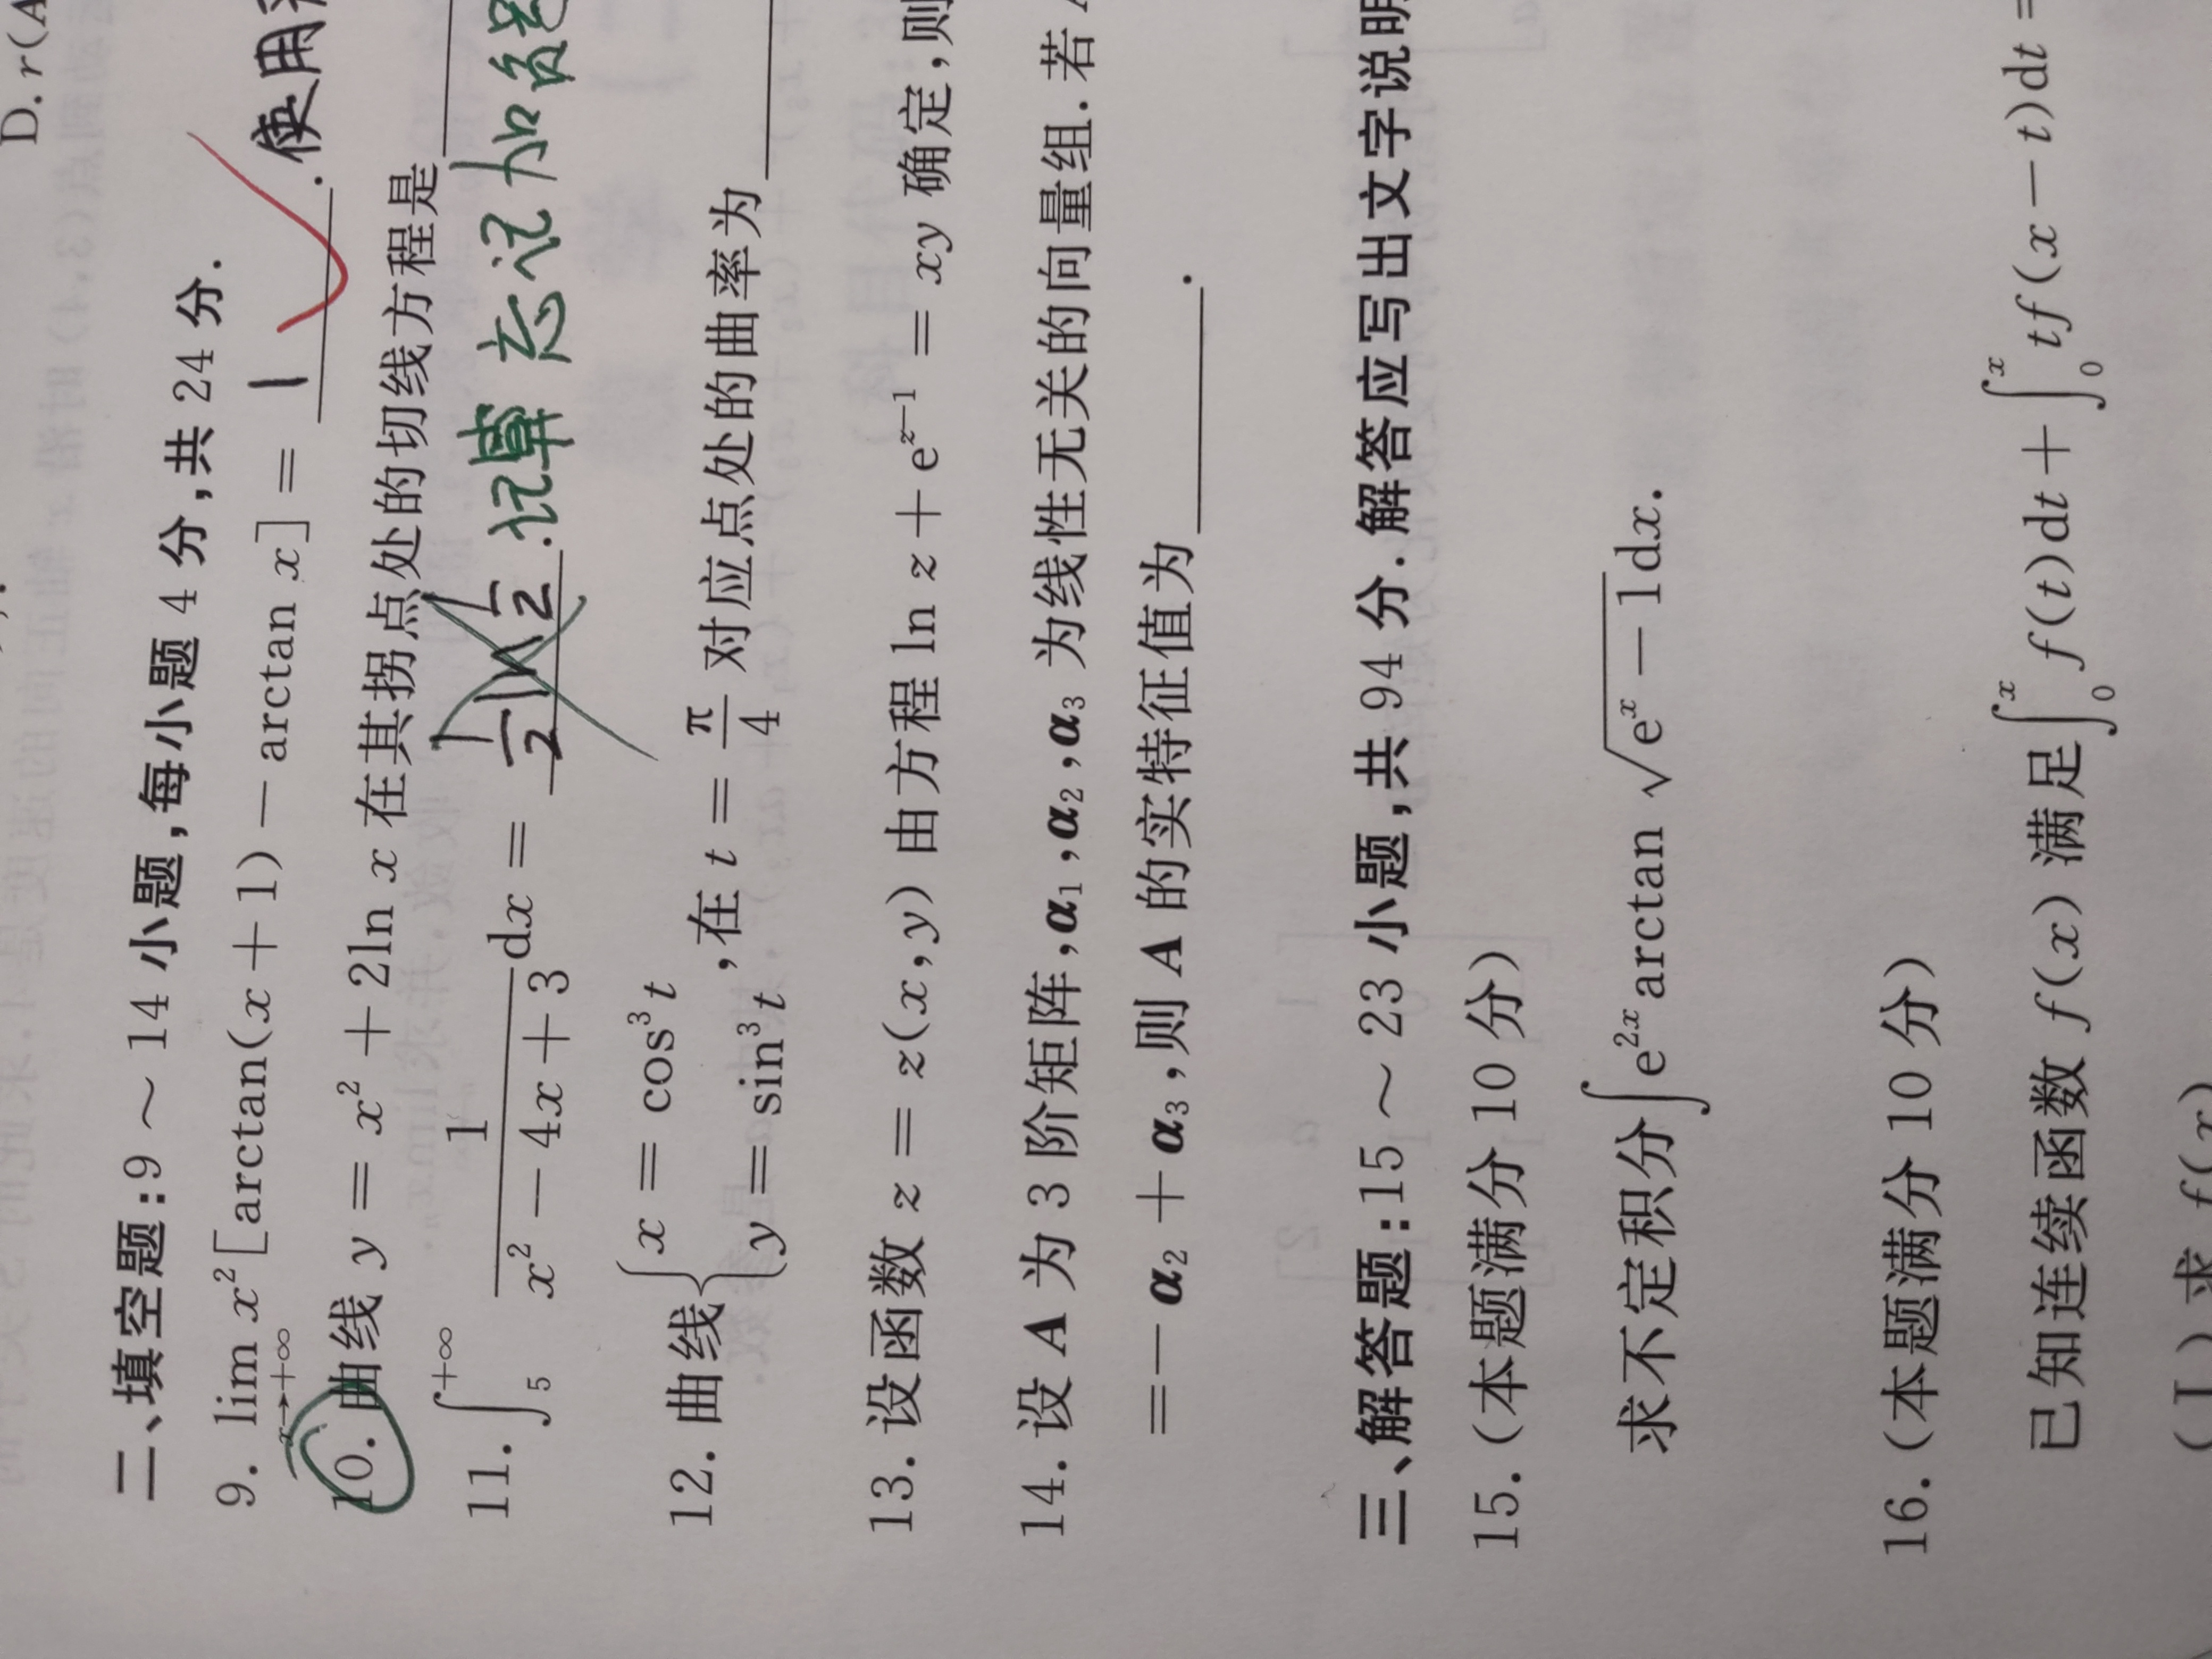 D. r(A
二、填空题:9 ~ 14 小题,每小题 4 分,共 24 分.
9. lim_{x→+∞} x²[arctan(x + 1) − arctan x] = 1 . 使用
10. 曲线 y = x² + 2ln x 在其拐点处的切线方程是
11. ∫_5^{+∞} 1/(x² − 4x + 3) dx = 忘记加
12. 曲线 { x = cos³t, y = sin³t , 在 t = π/4 对应点处的曲率为
13. 设函数 z = z(x,y) 由方程 ln z + e^{z−1} = xy 确定,则
14. 设 A 为 3 阶矩阵,α₁,α₂,α₃ 为线性无关的向量组. 若
= − α₂ + α₃,则 A 的实特征值为 .
三、解答题:15 ~ 23 小题,共 94 分. 解答应写出文字说明
15. (本题满分 10 分)
求不定积分∫e^{2x} arctan √(e^x − 1) dx.
16. (本题满分 10 分)
已知连续函数 f(x) 满足∫_0^x f(t)dt + ∫_0^x tf(x − t)dt =
(Ⅰ) 求 f(x)